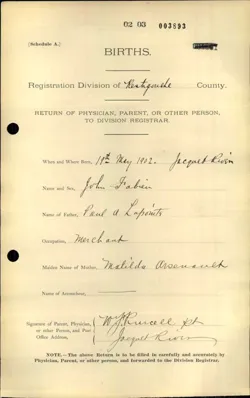 02 03 003893
(Schedule A.)
BIRTHS.
Registration Division of Restigouche County.
RETURN OF PHYSICIAN, PARENT, OR OTHER PERSON,
TO DIVISION REGISTRAR.
When and Where Born, 19th May 1902. Jacquet River
Name and Sex, John Fabien
Name of Father, Paul A Lapointe
Occupation, Merchant
Maiden Name of Mother, Matilda Arsenault
Name of Accoucheur,
Signature of Parent, Physician,
or other Person, and Post
Office Address,
Purcell
Jacquet River
NOTE.—The above Return is to be filled in carefully and accurately by
Physician, Parent, or other person, and forwarded to the Division Registrar.